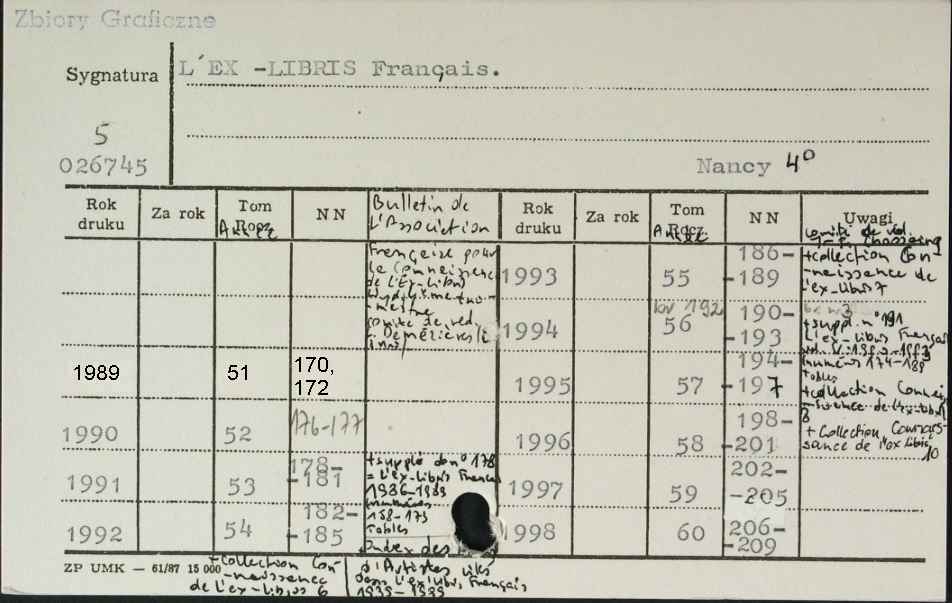 Zbiory Graficzne
Sygnatura
L'EX -LIBRIS Français.
5
026745
Nancy 4°
Rok druku
Za rok
Tom
Rocz.
NN
Bulletin de
L'Association
Rok druku
Za rok
Tom
Rocz.
NN
Uwagi
Française pour
la Connaissance
de L'Ex-Libris
comité de réd.
1993 55 186-
-189
+collection Con-
-naissance de
l'ex-libris 7
1994 56 190-
-193
+suppl. n° 191
L'ex-libris Français
1989 51 170,
172
1995 57 194-
-197
numéros 174-189
Tables
+collection Connais-
1990 52 176-177
1996 58 198-
-201
+ Collection Connais-
sance de l'ex libris
10
1991 53 178-
-181
+supplé do n° 178
= L'ex-libris Français
1997 59 202-
-205
1992 54 182-
-185
Tables
Index des
1998 60 206-
-209
ZP UMK — 61/87 15 000
+Collection Con-
-naissance
de l'ex-libris 6
d'Artistes cités
dans l'ex libris Français